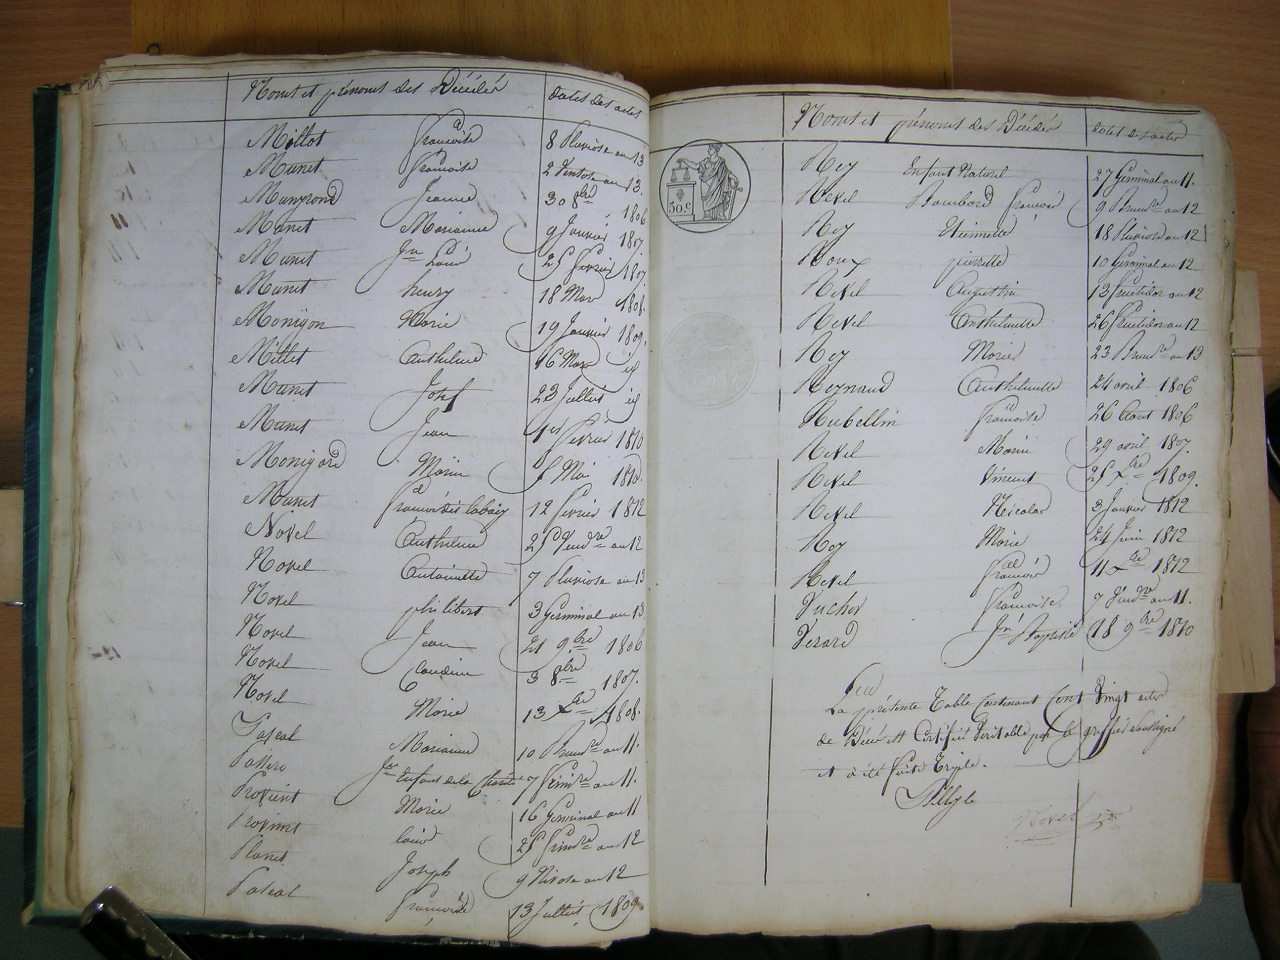 Noms et prénoms des Décédés dates des actes
Millot françoise 8 Pluviose an 13
Munet françoise 2 Ventose an 13.
Jeanne 30 8bre 1806
Munet Marianne 9 Janvier 1807.
Munet Jn Louis 25 fevrier 1807.
Munet henry 18 Mars 1808.
Monigon Marie 19 Janvier 1809.
Millet Anthelme 16 Mars id
Munet Josh 23 Juillet id
Munet Jean 1er fevrier 1810
Monigard Marie 5 Mai 1810.
Munet 12 fevrier 1812
Novel Anthelme 25 Vendre an 12
Novel Antoinette 7 Pluviose an 13
Novel philibert 3 Germinal an 13
Novel Jean 21 9bre 1806
Novel Claudine 3 8bre 1807.
Novel Marie 13 Xbre 1808.
Pascal Marianne 10 Brumre an 11.
Enfant de la Charité 7 frimre an 11.
Provent Marie 16 Germinal an 11
Provent Louis 25 frimre an 12
Planet Joseph 9 Nivose an 12
Pascal françoise 13 Juillet 1809
50.c
Noms et prénoms des Décédés dates des actes
Rey Enfant Naturel 27 Germinal an 11.
Revel Rambard françois 9 Brumre an 12
Rey Etiennette 18 Pluviose an 12
Roux pierrette 10 Germinal an 12
Revel Augustin 13 fructidor an 12
Revel Anthelmette 26 fructidor an 12
Rey Marie 23 Brumre an 13
Reynaud Anthelmette 24 avril 1806
Rubellin françoise 26 Aout 1806
Revel Marie 29 avril 1807.
Revel Vincent 25 Xbre 1809.
Revel Nicolas 3 Janvier 1812
Roy Marie 24 Juin 1812
Revel françois 11 Xbre 1812
Vuchot françoise 7 Vendre an 11.
Verard Jn Baptiste 18 9bre 1810
La présente Table Contenant Cent Vingt actes
de Décès est Certifiée Veritable par le greffier soussigné
et a été faite Triple.
Novel